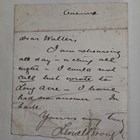 Dear Walter,
I am rehearsing
all day - & acting all
night - I could not
call but wrote to
Long Acre - I have
had no answer - In
haste
Yours very truly